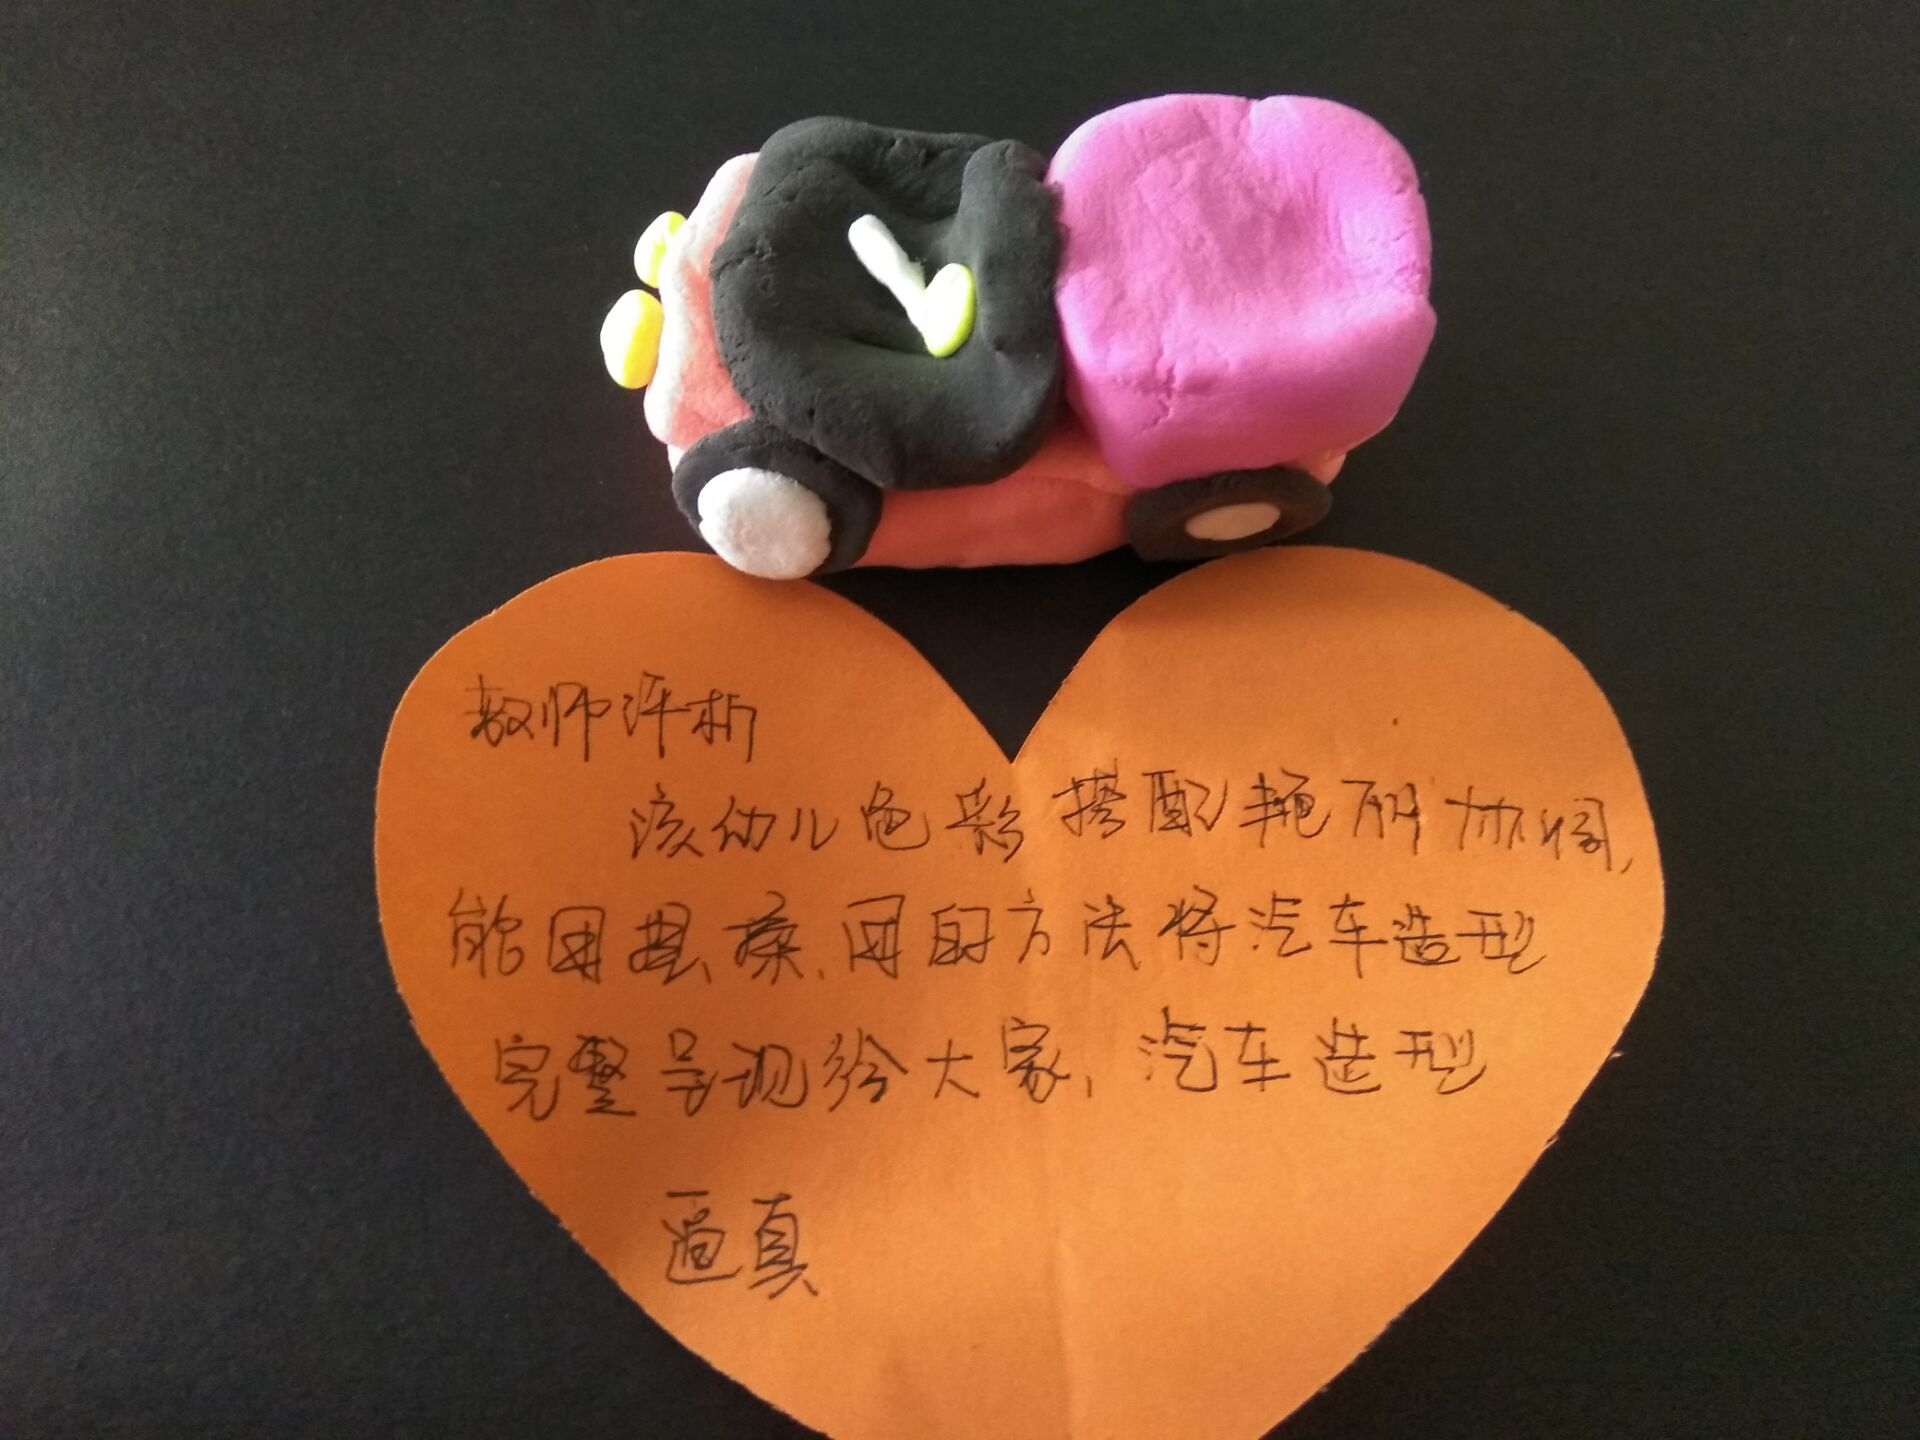 教师评析
该幼儿色彩搭配艳丽协调,
能用搓、揉、团的方法将汽车造型
完整呈现给大家,汽车造型
逼真